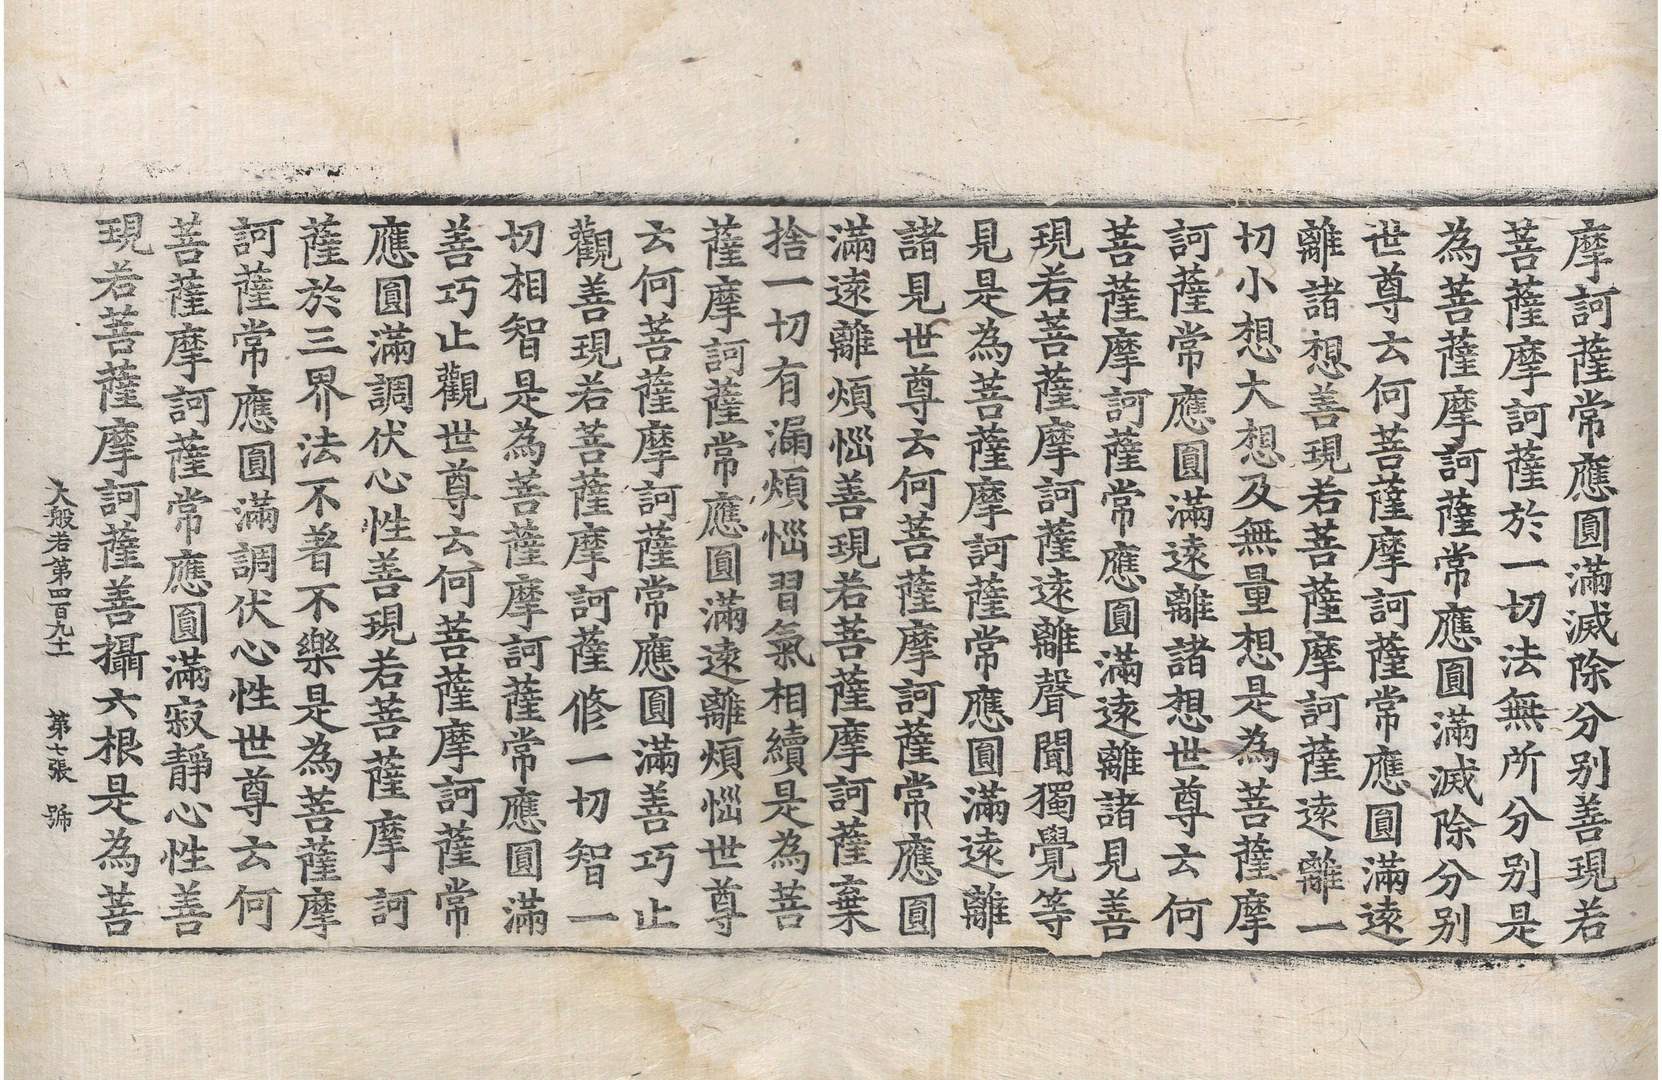 摩訶薩常應圓滿滅除分別善現若
菩薩摩訶薩於一切法無所分別是
為菩薩摩訶薩常應圓滿滅除分別
世尊云何菩薩摩訶薩常應圓滿遠
離諸想善現若菩薩摩訶薩遠離一
切小想大想及無量想是為菩薩摩
訶薩常應圓滿遠離諸想世尊云何
菩薩摩訶薩常應圓滿遠離諸見善
現若菩薩摩訶薩遠離聲聞獨覺等
見是為菩薩摩訶薩常應圓滿遠離
諸見世尊云何菩薩摩訶薩常應圓
滿遠離煩惱善現若菩薩摩訶薩棄
捨一切有漏煩惱習氣相續是為菩
薩摩訶薩常應圓滿遠離煩惱世尊
云何菩薩摩訶薩常應圓滿善巧止
觀善現若菩薩摩訶薩修一切智一
切相智是為菩薩摩訶薩常應圓滿
善巧止觀世尊云何菩薩摩訶薩常
應圓滿調伏心性善現若菩薩摩訶
薩於三界法不著不樂是為菩薩摩
訶薩常應圓滿調伏心性世尊云何
菩薩摩訶薩常應圓滿寂靜心性善
現若菩薩摩訶薩善攝六根是為菩
大般若第四百九十一 第七張 號